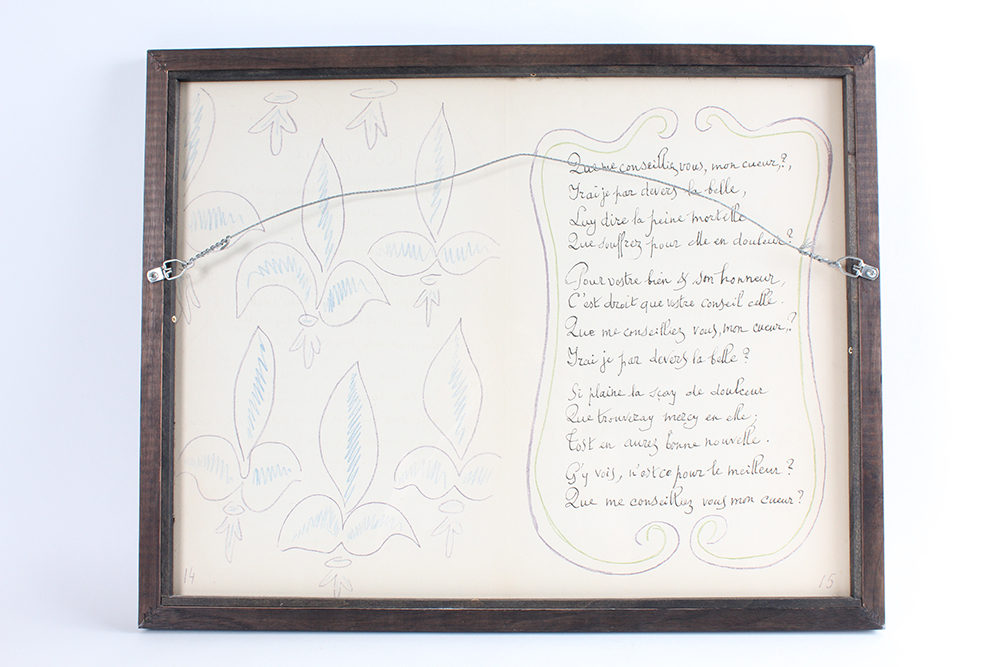 Que me conseillez vous, mon cueur,?,
Irai je par devers la belle,
Luy dire la peine mortelle
Que souffrez pour elle en douleur?
Pour vostre bien & son honneur,
C'est droit que vostre conseil celle.
Que me conseillez vous, mon cueur,?
Irai je par devers la belle?
Si plaine la sçay de doulceur
Que trouveray mercy en elle;
Tost en aurez bonne nouvelle.
G'y vois, n'est ce pour le meilleur?
Que me conseillez vous mon cueur?
14
15